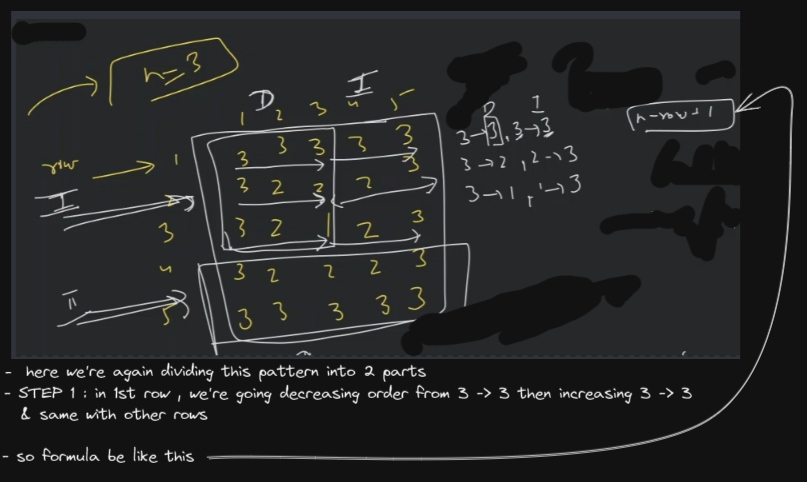 n=3
D I
1 2 3 4 5
row 1 3 3 3 3 3
I 2 3 2 2 2 3
3 3 2 1 2 3
4 3 2 2 2 3
II 5 3 3 3 3 3
D I
3→3, 3→3
3→2, 2→3
3→1, 1→3
n-row+1
- here we're again dividing this pattern into 2 parts
- STEP 1 : in 1st row, we're going decreasing order from 3 -> 3 then increasing 3 -> 3
& same with other rows
- so formula be like this